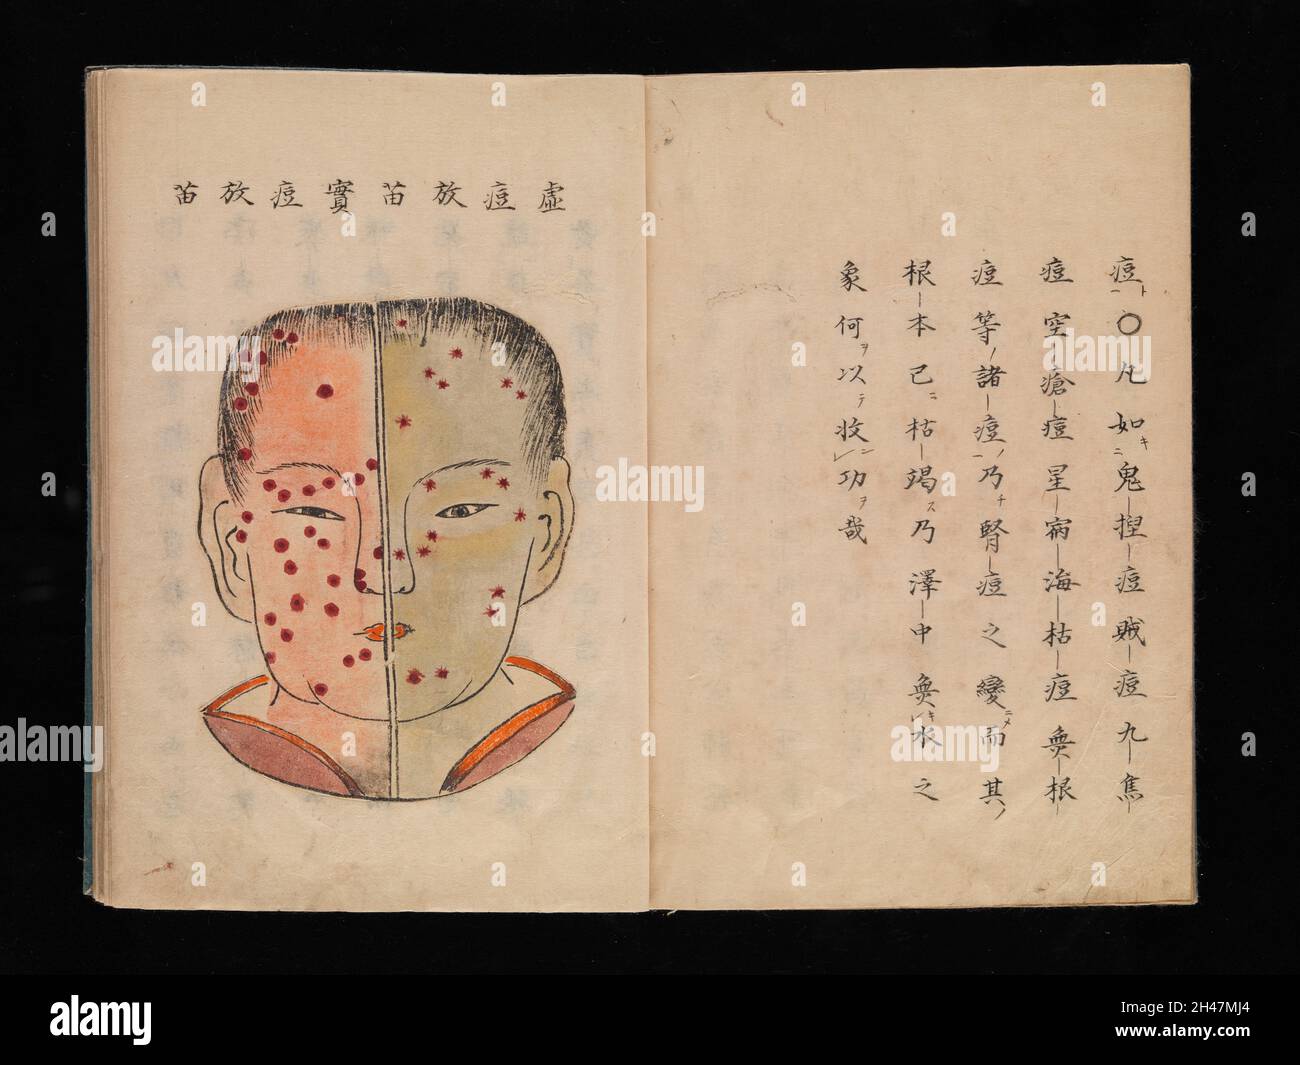 痘ト〇凡如キニ鬼捏痘賊痘九焦
痘空瘡痘星宿海枯痘無根
痘等ノ諸痘ノ乃チ腎痘之變ニメ而其ノ
根本已ニ枯竭ス乃澤中無キ水之
象何ヲ以テ收ン功ヲ哉
虛痘放苗實痘放苗
a alamy
alamy
Image ID: 2H47MJ4
www.alamy.com